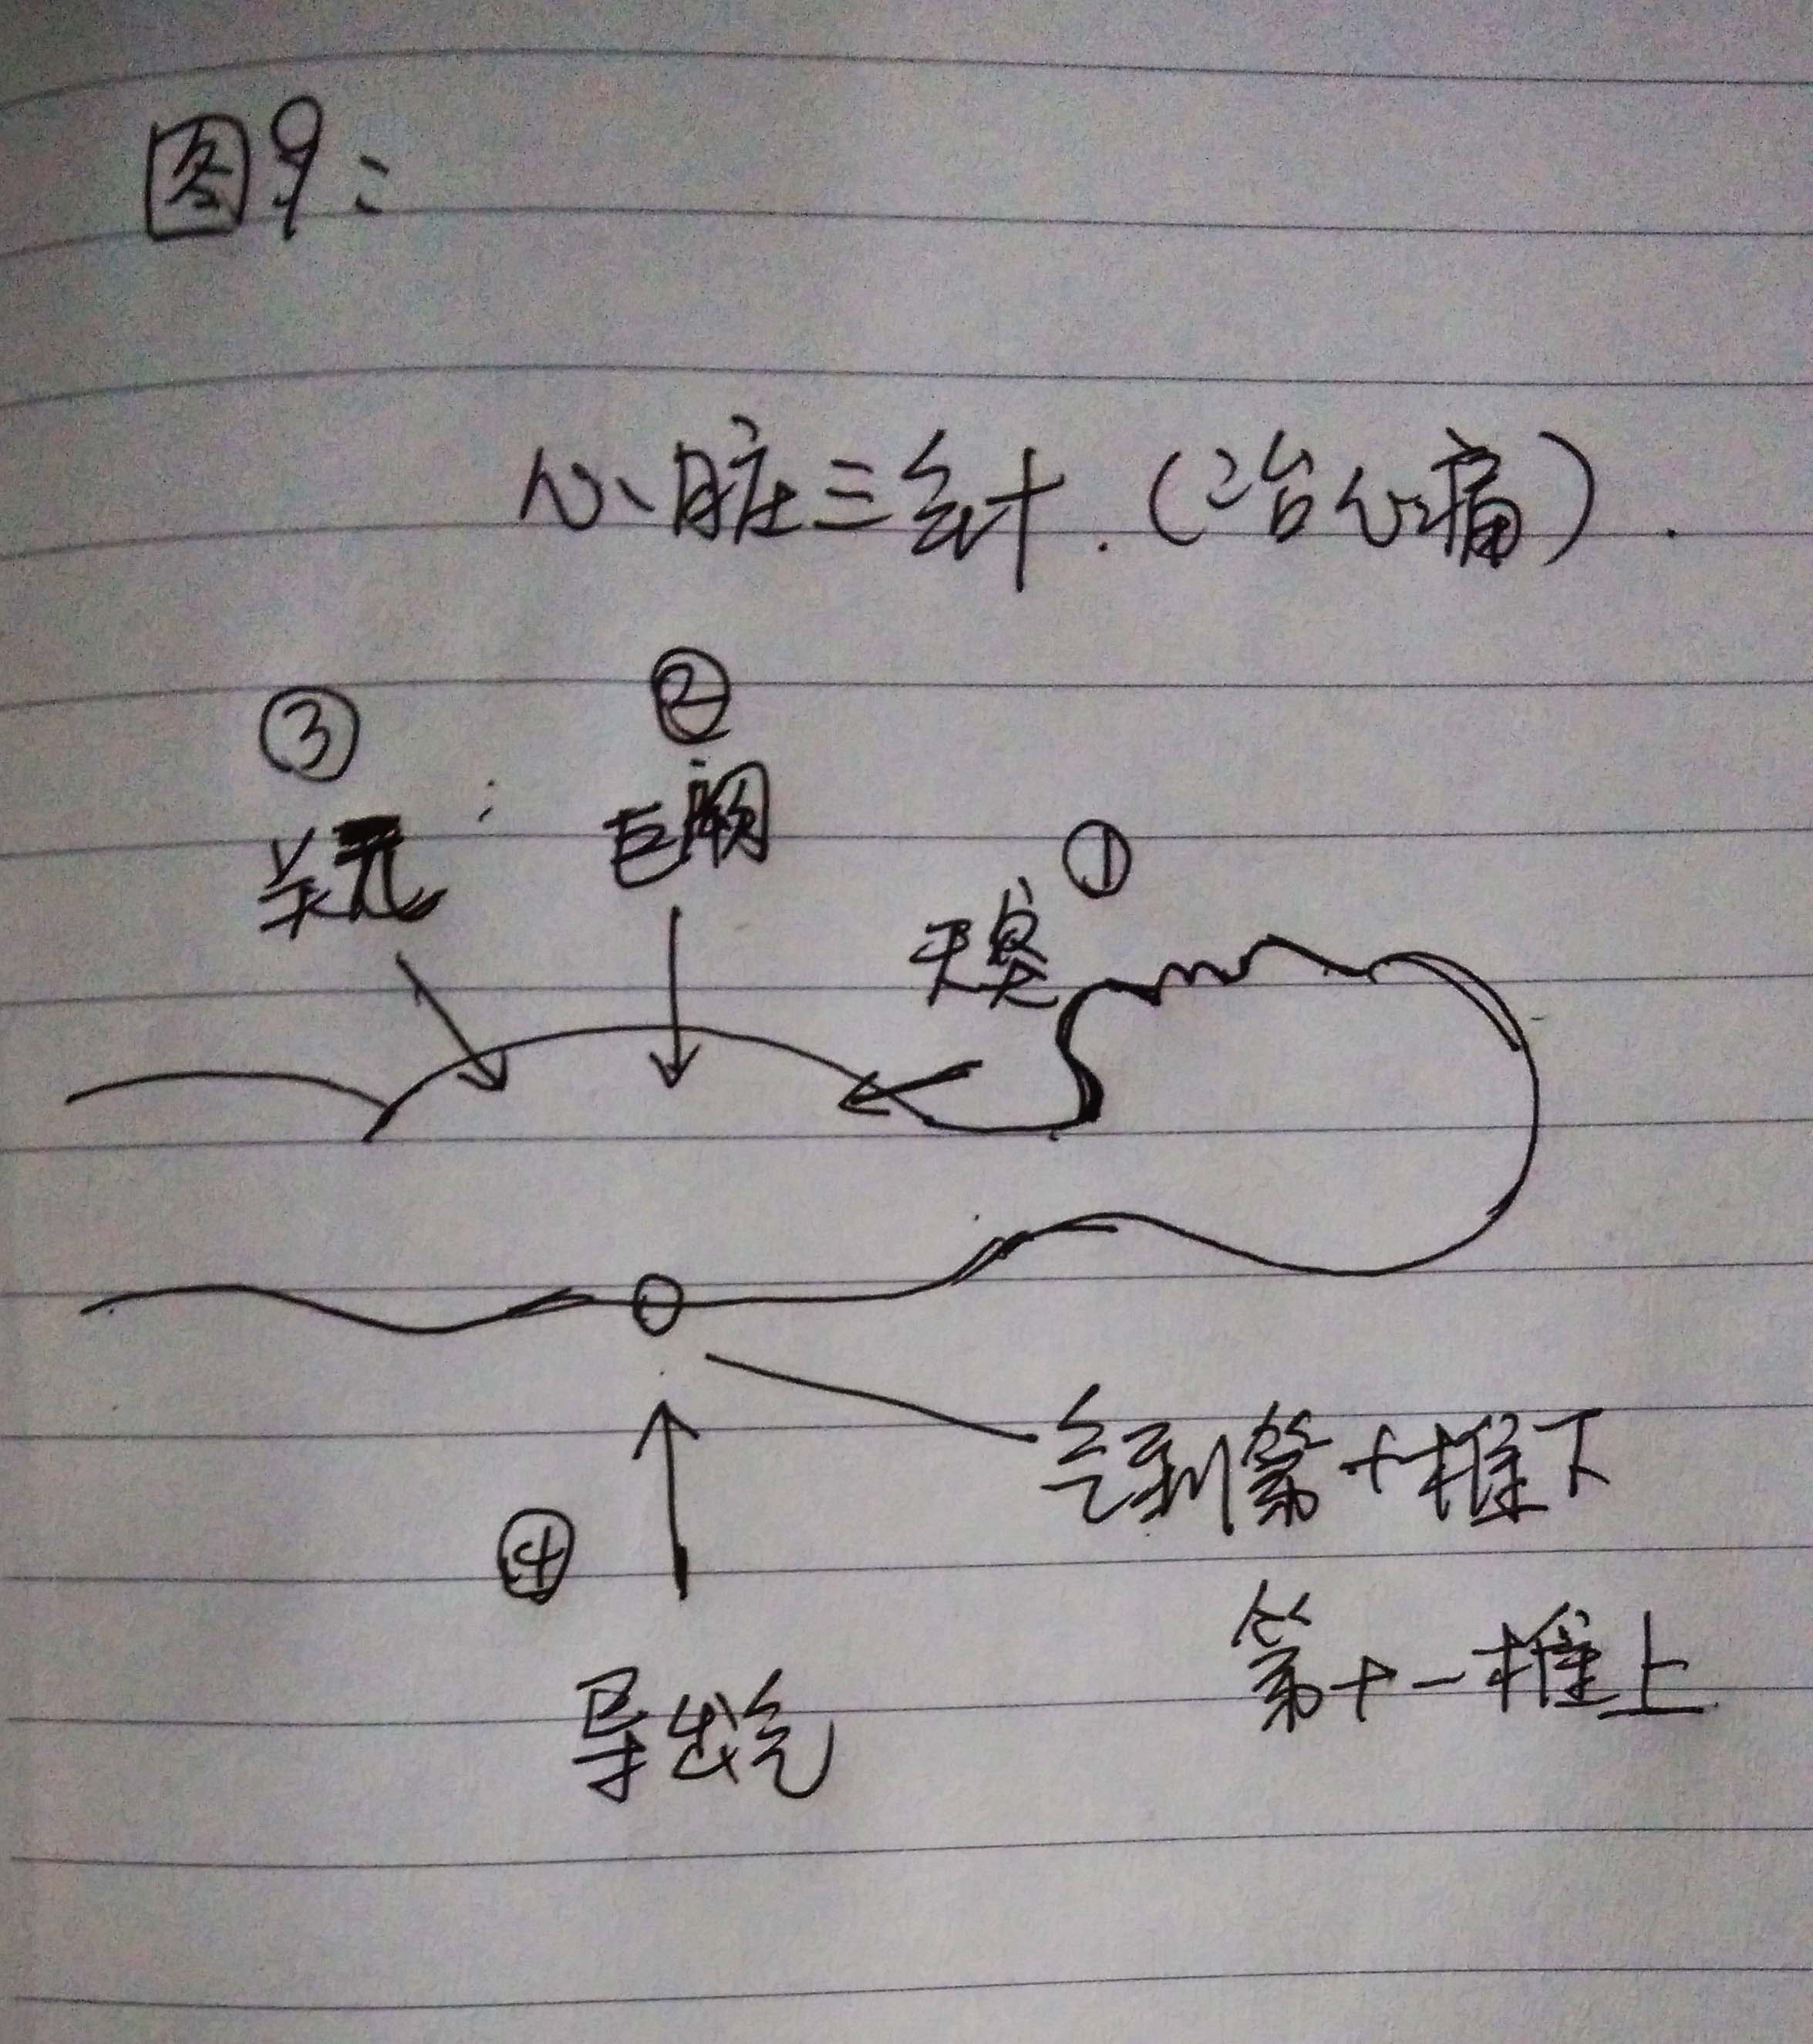 图9：
心脏三针.（治心痛）.
②
③
巨阙
①
关元
天突
气到第十椎下
④
第十一椎上
导出气